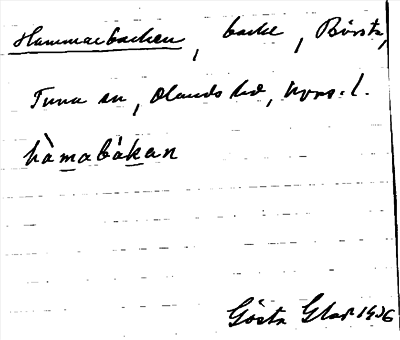 Hammarbacken, backe, Börsta,
Tuna sn, Olands hd, Upps. l.
hàmabákan
Gösta Glas 1936